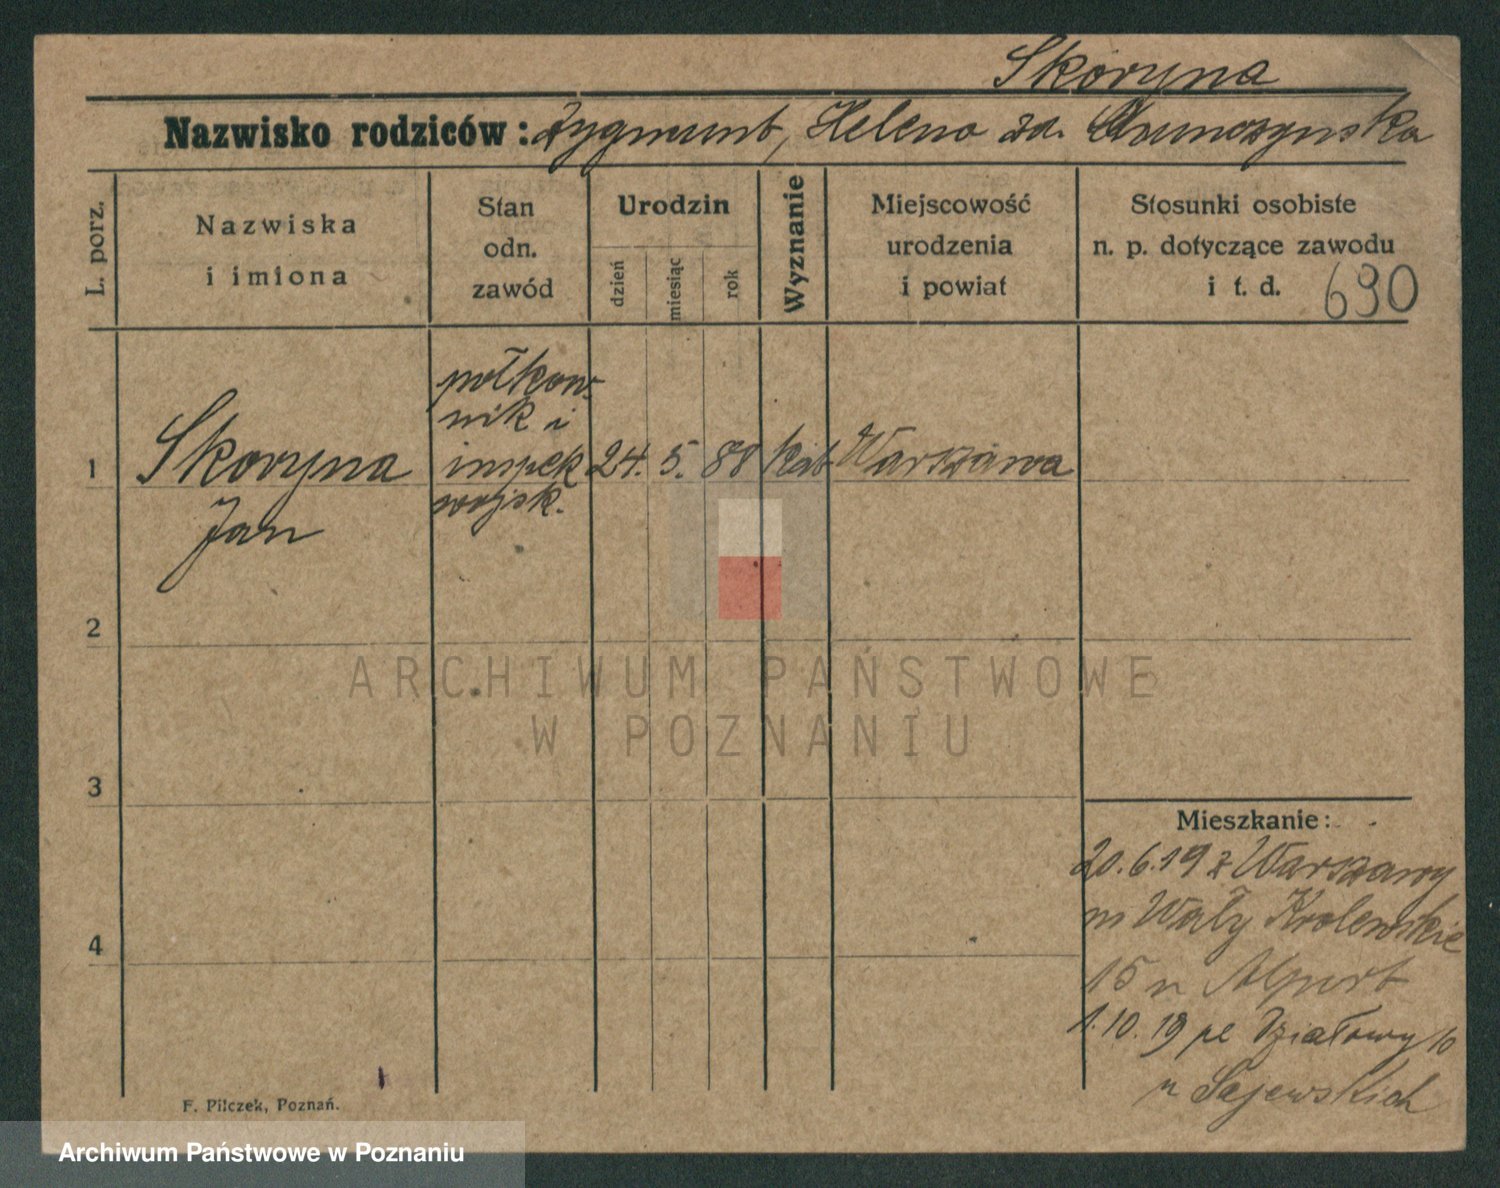 Skoryna
Nazwisko rodziców: Zygmunt, Helena zd.
L. porz.
Nazwiska
i imiona
Stan
odn.
zawód
Urodzin
dzień
miesiąc
rok
Wyznanie
Miejscowość
urodzenia
i powiat
Stosunki osobiste
n. p. dotyczące zawodu
i t. d.
690
1
Skoryna
Jan
połkow-
nik i
inspek
wojsk.
24. 5. 88 kat Warszawa
2
3
4
Mieszkanie:
20.6.19 z Warszawy
m Wały Krolewskie
15 u Alpert
1.10.19 pe Działowy 10
u Gajewskich
F. Pilczek, Poznań.
ARCHIWUM PAŃSTWOWE
W POZNANIU
Archiwum Państwowe w Poznaniu